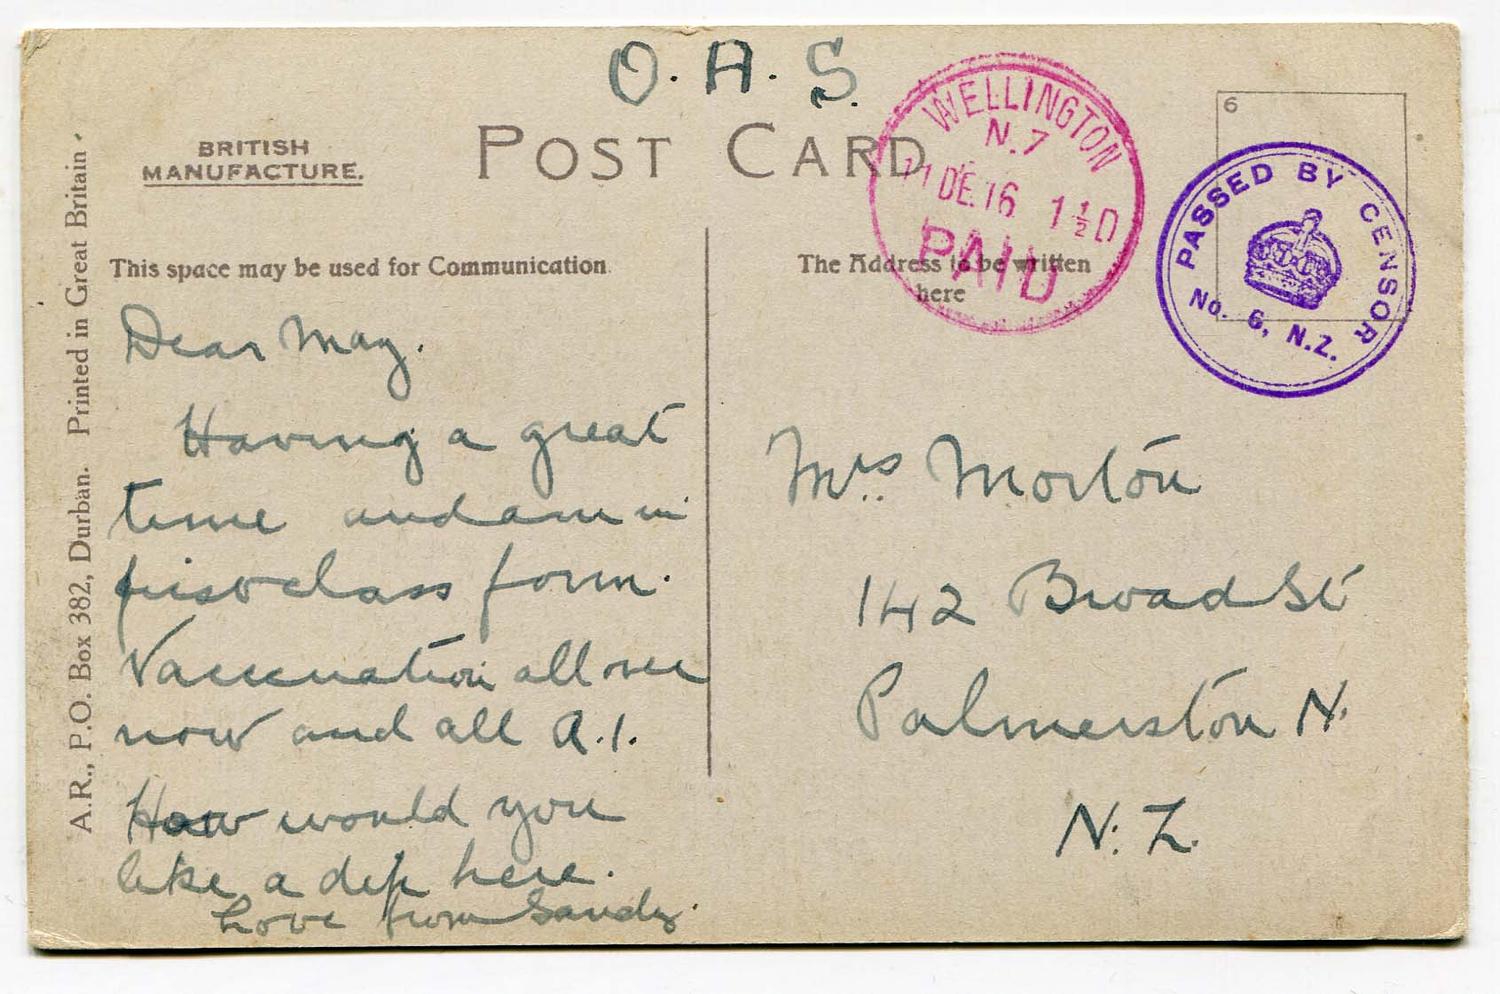 O.A.S.
BRITISH
MANUFACTURE.
POST CARD
WELLINGTON
N.Z
11 DE.16 1½D
PAID
6
PASSED BY CENSOR
No. 6, N.Z.
This space may be used for Communication
The Address to be written
here
A.R., P.O. Box 382, Durban. Printed in Great Britain.
Dear May.
Having a great
time and am in
first class form.
Vaccination all over
now and all A.1.
How would you
like a dip here.
Love from Sandy.
Mrs. Morton
142 Broad St
Palmerston N.
N.Z.